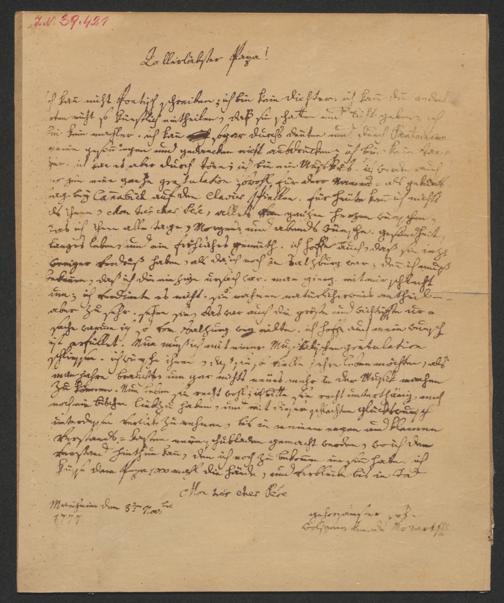 J.N. 39.421
Allerliebster Papa!
Ich kan nicht Poetisch schreiben; ich bin kein dichter. ich kan die redens
arten nicht so künstlich eintheilen, daß sie schatten und licht geben; ich
bin kein mahler. ich kan sogar durchs deüten und durch Pantomime
meine gesinnungen und gedancken nicht ausdrücken; ich bin kein tan-
zer. ich kan es aber durch töne; ich bin ein Musikus. ich werde auch
morgen eine ganze gratulation sowohl für dero Namens- als geburts-
tag bey Cannabich auf den Clavier spiellen. für heüte kan ich nichts
als ihnen, Mon trés cher Pére, alles vom ganzen herzen wünschen,
was ich ihnen alle tage, Morgens, und abends wünsche. gesundheit,
langes leben, und ein fröhliches gemüth. ich hoffe auch, daß sie izt
weniger verdruß haben, als da ich noch in salzburg war; denn ich muß
bekennen, daß ich die einzige ursach war. man gieng mit mir schlecht
um; ich verdiente es nicht. sie nahmen natürlicherweis antheil --
aber zu sehr. sehen sie, das war auch die gröste und wichtigste ur-
sache warum ich so von salzburg weg eilte. ich hoffe auch mein wunsch
ist erfüllet. Nun muß ich mit einer Musikalischen gratulation
schliessen. ich wünsche ihnen, daß sie so viele jahre leben möchten, als
man jahre braucht, um gar nichts neues mehr in der Musick machen
zu können. Nun leben sie recht wohl; ich bitte sie recht unterthänig, mich
noch ein bischen lieb zu haben, und mit diesen schlechten glückwunsch
unterdessen verlieb zu nehmen, bis in meinem engen und kleinen
verstands-kasten neüe schubladen gemacht werden, wo ich den
verstand hinthun kan, den ich noch zu bekomen im sinn habe. ich
küsse dem Papa 1000mahl die hände, und verbleibe bis in Tod
Mon trés cher Pére
Manheim den 8:ten Nov:bre
1777
gehorsamster sohn
Wolfgang Amadé Mozart